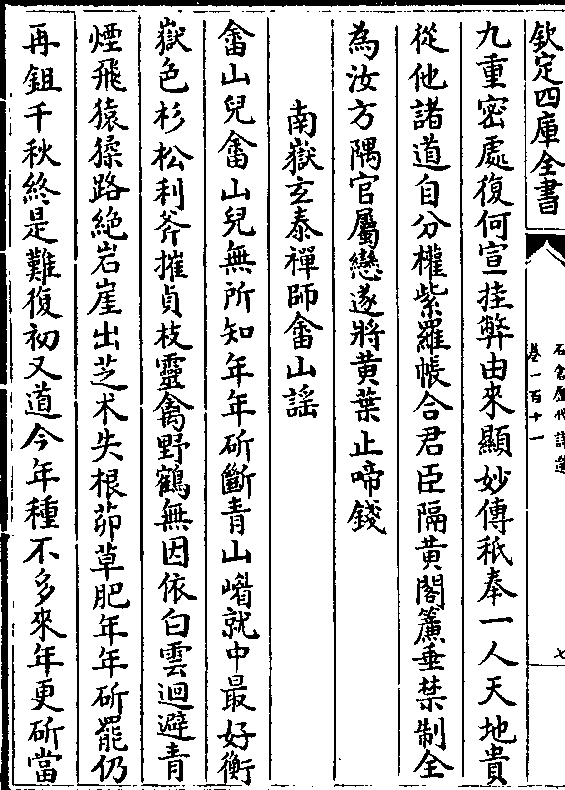 欽定四庫全書
卷一百十一
七
九重密處復何宣挂弊由來顯妙傳秖奉一人天地貴
從他諸道自分權紫羅帳合君臣隔黄閣簾垂禁制全
為汝方隅官屬戀遂將黄葉止啼錢
南嶽玄泰禪師畬山謡
畬山兒畬山兒無所知年年斫斷青山嵋就中最好衡
嶽色杉松利斧摧貞枝靈禽野鶴無因依白雲迴避青
煙飛猿猱路絶岩崖出芝术失根茆草肥年年斫罷仍
再鉏千秋終是難復初又道今年種不多來年更斫當